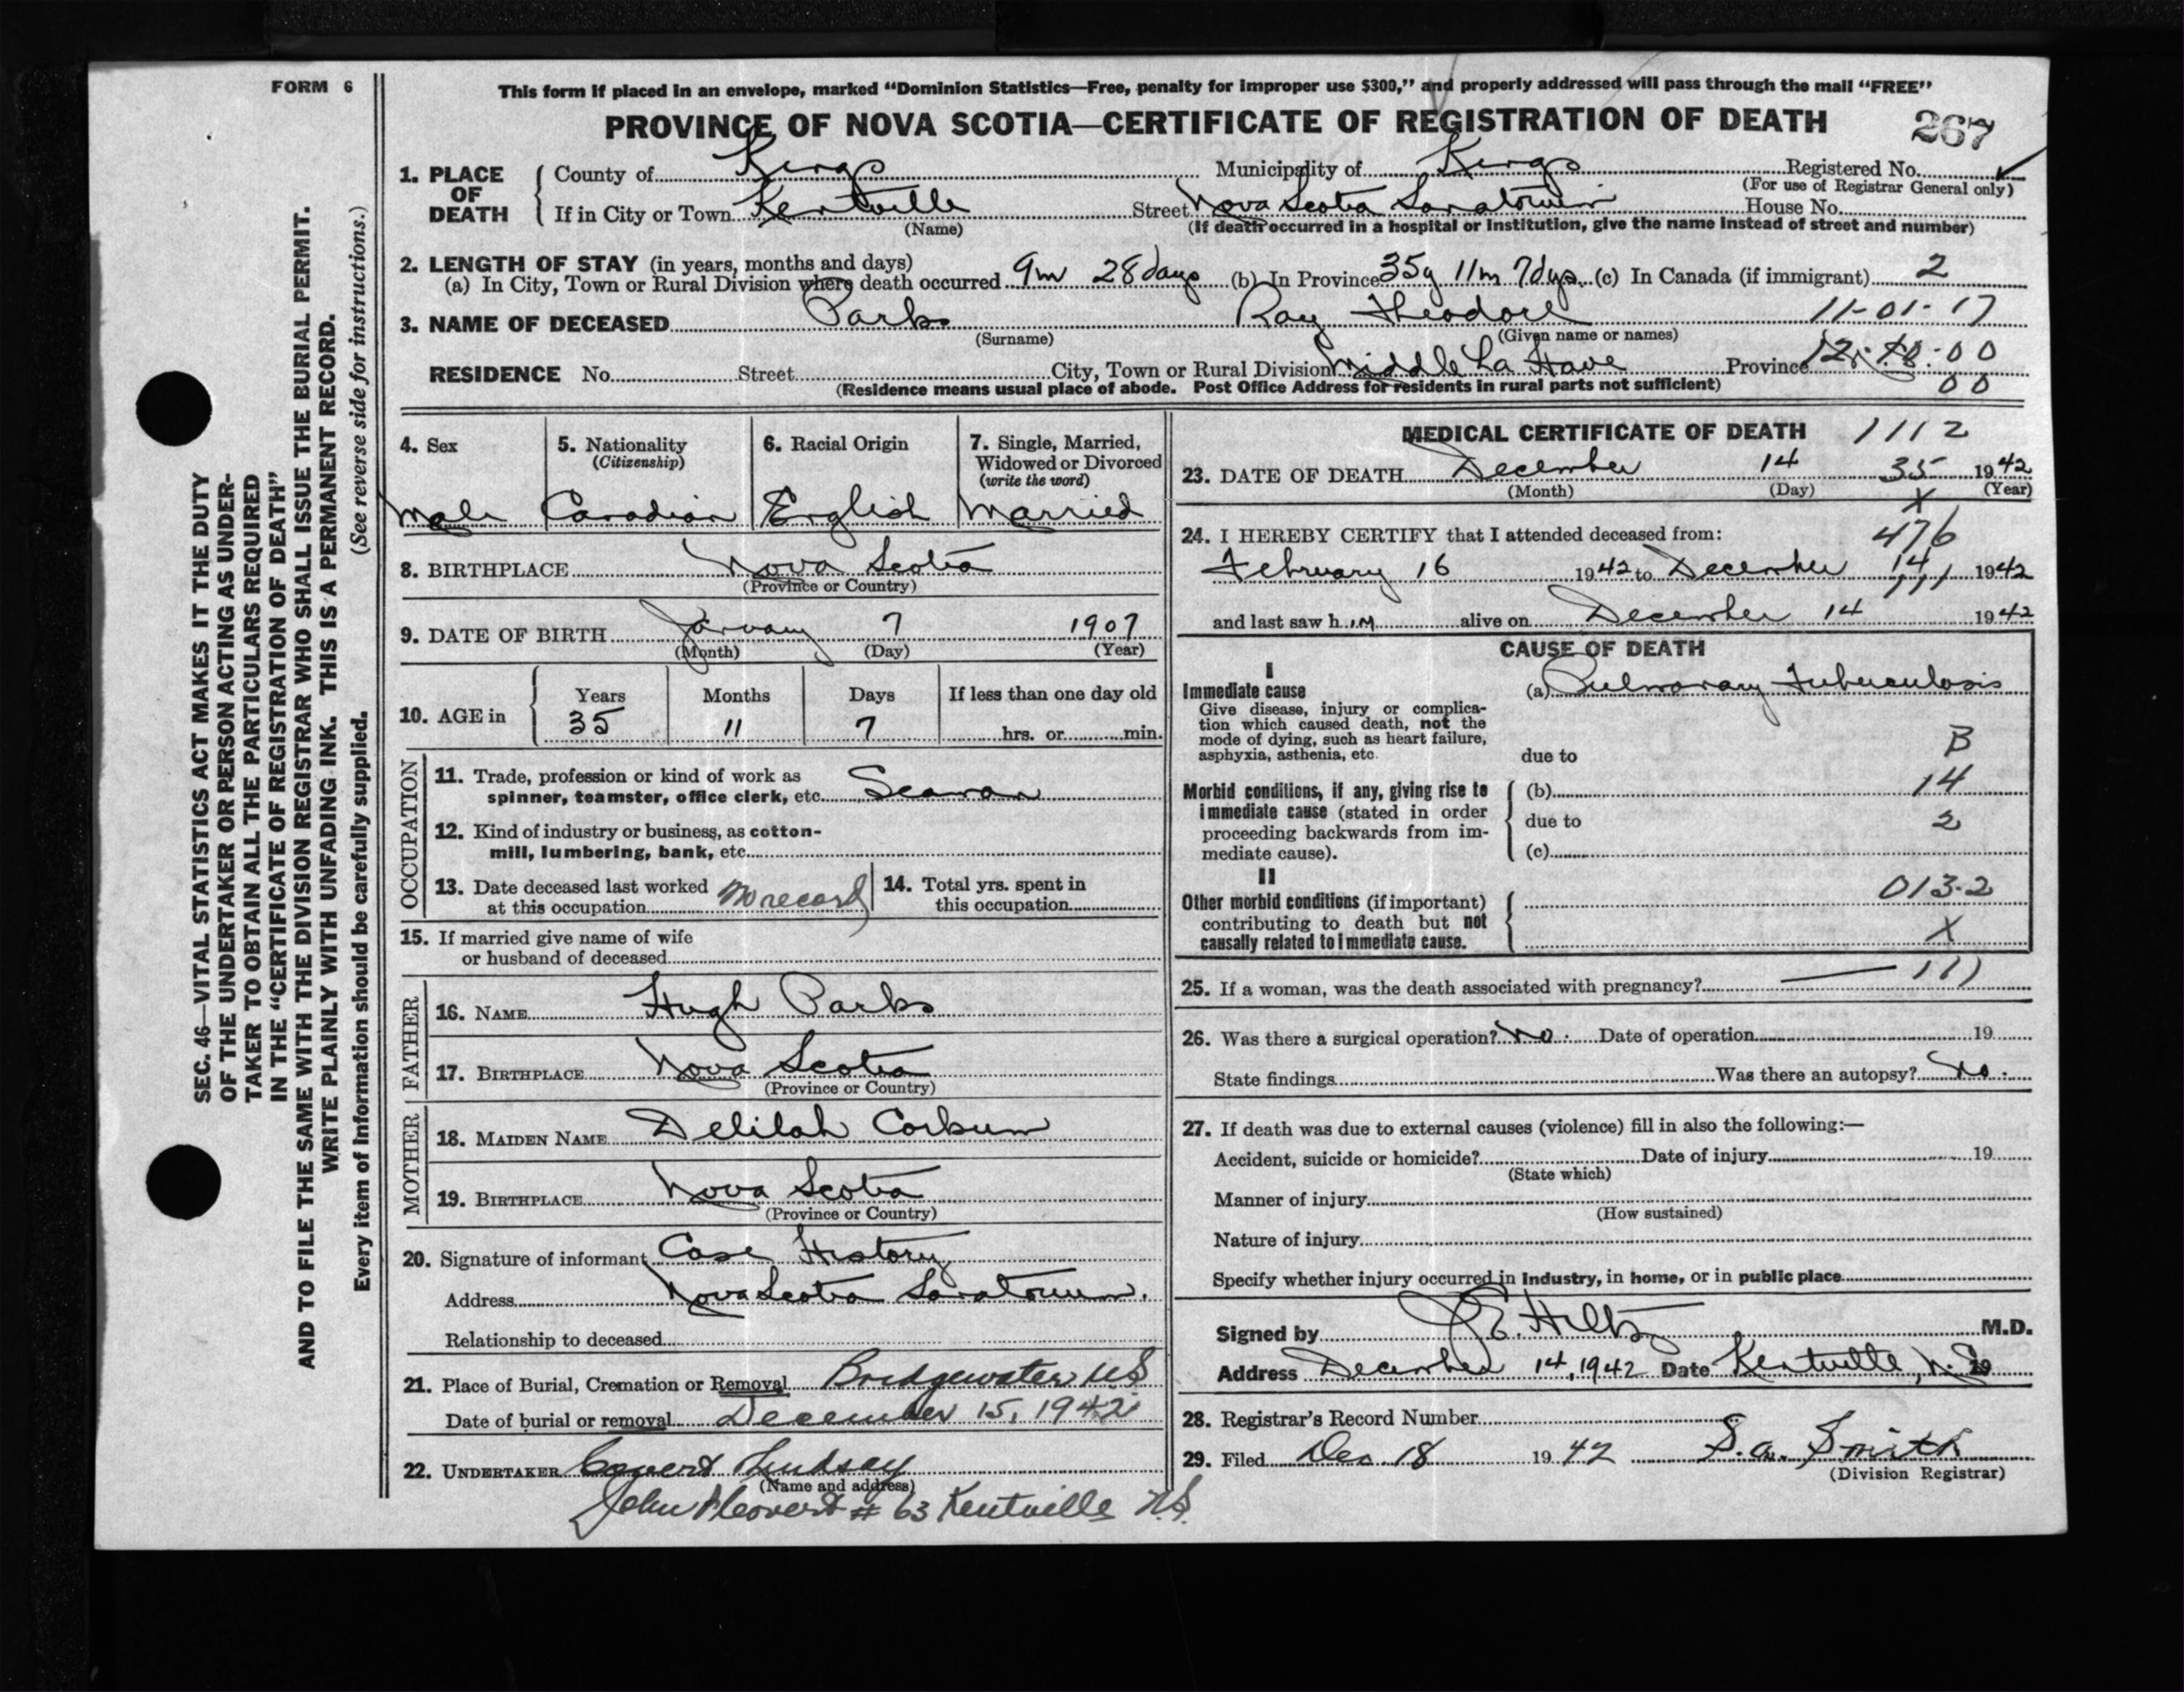 FORM 6
This form if placed in an envelope, marked “Dominion Statistics—Free, penalty for improper use $300,” and properly addressed will pass through the mail “FREE”
PROVINCE OF NOVA SCOTIA—CERTIFICATE OF REGISTRATION OF DEATH
267
1. PLACE OF DEATH
County of Kings Municipality of Kings Registered No.
(For use of Registrar General only)
If in City or Town Kentville Street Nova Scotia Sanatorium House No.
(Name) (If death occurred in a hospital or institution, give the name instead of street and number)
2. LENGTH OF STAY (in years, months and days)
(a) In City, Town or Rural Division where death occurred 9m 28 days (b) In Province 35y 11m 7dys. (c) In Canada (if immigrant) 2
3. NAME OF DECEASED Parks Ray Theodore 11-01-17
(Surname) (Given name or names)
RESIDENCE No. Street City, Town or Rural Division Middle La Have Province
(Residence means usual place of abode. Post Office Address for residents in rural parts not sufficient) 00
SEC. 46—VITAL STATISTICS ACT MAKES IT THE DUTY
OF THE UNDERTAKER OR PERSON ACTING AS UNDER-
TAKER TO OBTAIN ALL THE PARTICULARS REQUIRED
IN THE “CERTIFICATE OF REGISTRATION OF DEATH”
AND TO FILE THE SAME WITH THE DIVISION REGISTRAR WHO SHALL ISSUE THE BURIAL PERMIT.
WRITE PLAINLY WITH UNFADING INK. THIS IS A PERMANENT RECORD.
Every item of Information should be carefully supplied. (See reverse side for instructions.)
4. Sex
Male
5. Nationality
(Citizenship)
Canadian
6. Racial Origin
English
7. Single, Married,
Widowed or Divorced
(write the word)
Married
8. BIRTHPLACE Nova Scotia
(Province or Country)
9. DATE OF BIRTH January 7 1907
(Month) (Day) (Year)
10. AGE in
Years Months Days If less than one day old
35 11 7 hrs. or min.
OCCUPATION
11. Trade, profession or kind of work as
spinner, teamster, office clerk, etc. Seaman
12. Kind of industry or business, as cotton-
mill, lumbering, bank, etc.
13. Date deceased last worked
at this occupation No record
14. Total yrs. spent in
this occupation
15. If married give name of wife
or husband of deceased
FATHER
16. NAME Hugh Parks
17. BIRTHPLACE Nova Scotia
(Province or Country)
MOTHER
18. MAIDEN NAME Delilah Corkum
19. BIRTHPLACE Nova Scotia
(Province or Country)
20. Signature of informant Case History
Address Nova Scotia Sanatorium.
Relationship to deceased
21. Place of Burial, Cremation or Removal Bridgewater NS
Date of burial or removal December 15, 1942
22. UNDERTAKER Covert Lindsay
(Name and address)
John A Covert # 63 Kentville N.S.
MEDICAL CERTIFICATE OF DEATH 1112
23. DATE OF DEATH December 14 35 1942
(Month) (Day) X (Year)
24. I HEREBY CERTIFY that I attended deceased from: 476
February 16 1942 to December 14 1942
111
and last saw him alive on December 14 1942
CAUSE OF DEATH
I
Immediate cause
Give disease, injury or complica-
tion which caused death, not the
mode of dying, such as heart failure,
asphyxia, asthenia, etc.
(a) Pulmonary Tuberculosis
B
due to
Morbid conditions, if any, giving rise to
immediate cause (stated in order
proceeding backwards from im-
mediate cause).
(b) 14
due to 2
(c)
II
Other morbid conditions (if important)
contributing to death but not
causally related to immediate cause.
013-2
X
25. If a woman, was the death associated with pregnancy? — 111
26. Was there a surgical operation? No. Date of operation 19
State findings Was there an autopsy? No.
27. If death was due to external causes (violence) fill in also the following:—
Accident, suicide or homicide? Date of injury 19
(State which)
Manner of injury
(How sustained)
Nature of injury
Specify whether injury occurred in industry, in home, or in public place
Signed by J.E. Hiltz M.D.
Address December 14, 1942 Date Kentville, N.S. 19
28. Registrar's Record Number
29. Filed Dec. 18 1942 S.A. Smith
(Division Registrar)